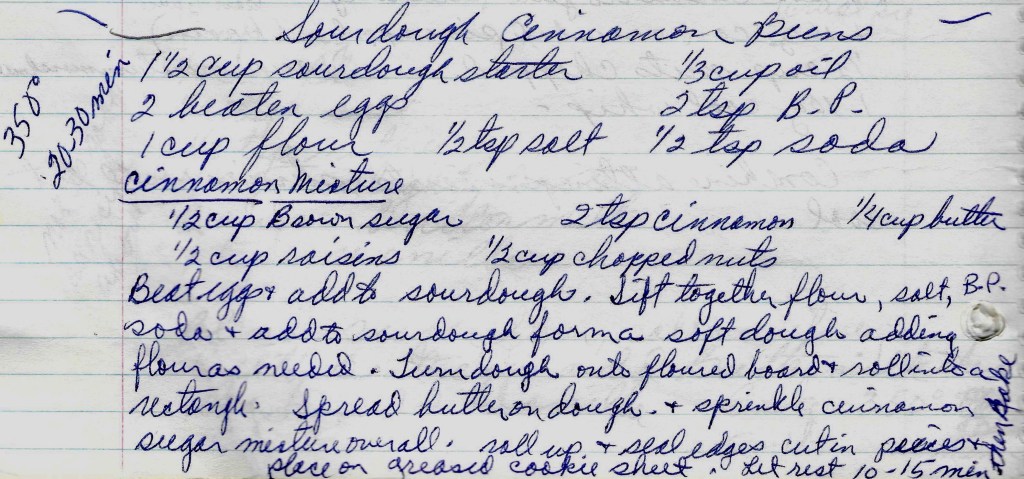 Sourdough Cinnamon Buns
1 1/2 cup sourdough starter 1/3 cup oil
2 beaten eggs 2 tsp B.P.
1 cup flour 1/2 tsp salt 1/2 tsp soda
Cinnamon Mixture
1/2 cup Brown sugar 2 tsp cinnamon 1/4 cup butter
1/2 cup raisins 1/2 cup chopped nuts
Beat eggs + add to sourdough. Sift together flour, salt, B.P.
soda + add to sourdough form a soft dough adding
flour as needed. Turn dough onto floured board + roll into a
rectangle. Spread butter on dough. + sprinkle cinnamon
sugar mixture over all. roll up. + seal edges cut in pieces +
place on greased cookie sheet. Let rest 10-15 min
then Bake
350°
20-30 min